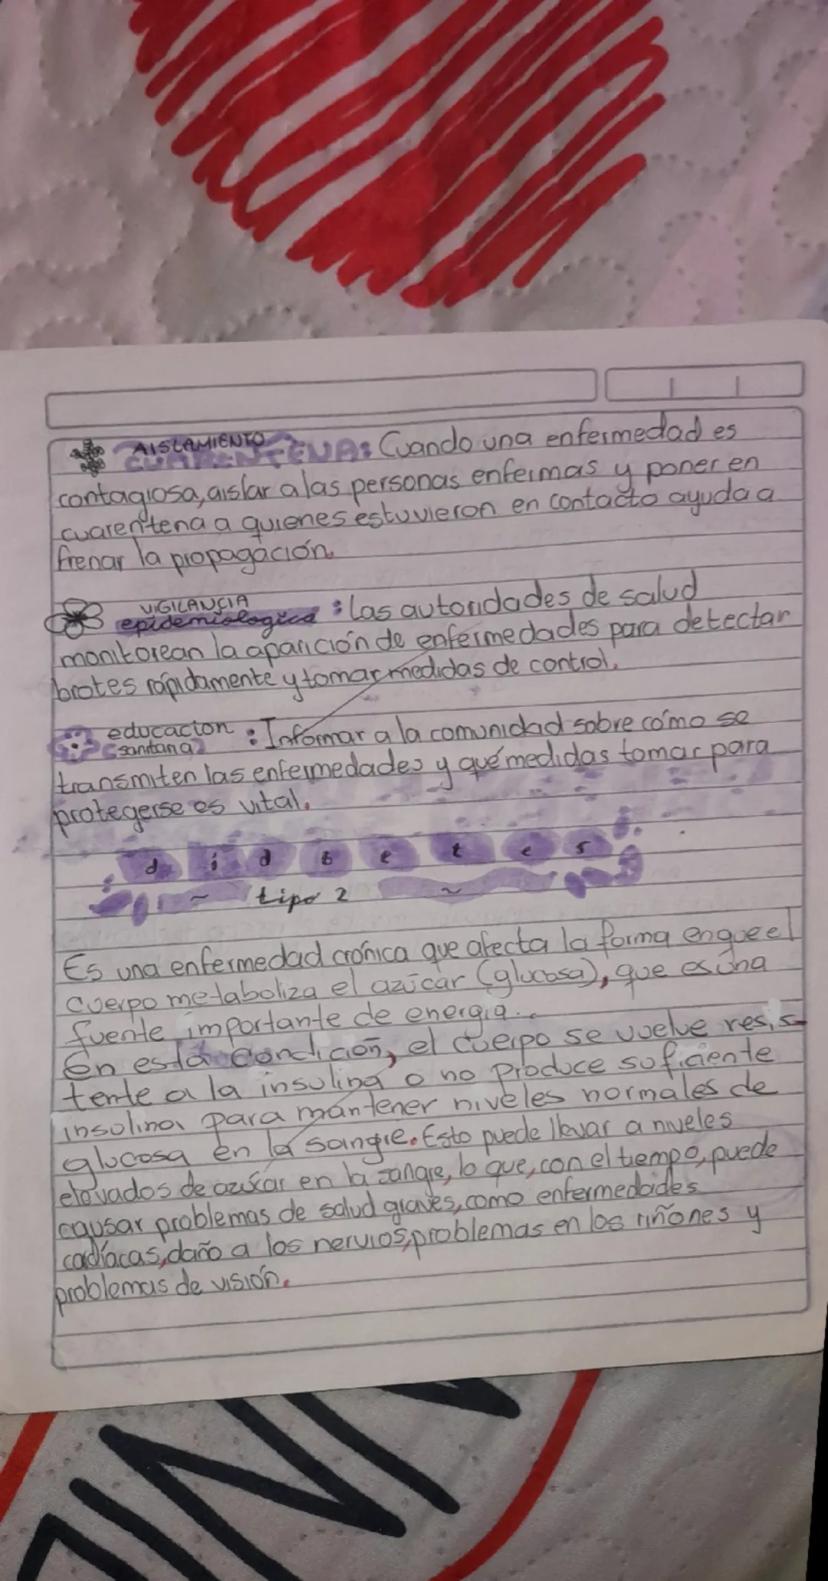 AISLAMIENTO
CUARENTENA: Cuando una enfermedad es
contagiosa, aislar a las personas enfermas y poner en
cuarentena a quienes estuvieron en contacto ayuda a
frenar la propagación.
VIGILANCIA
epidemiologica : las autoridades de salud
monitorean la aparición de enfermedades para detectar
brotes rápidamente y tomar medidas de control.
educacion
(sanitaria) : Informar a la comunidad sobre cómo se
transmiten las enfermedades y qué medidas tomar para
protegerse es vital.
diabetes
~ tipo 2 ~
Es una enfermedad crónica que afecta la forma en que el
cuerpo metaboliza el azúcar (glucosa), que es una
fuente importante de energia..
En esta condición, el cuerpo se vuelve resis-
tente a la insulina o no produce suficiente
insulina para mantener niveles normales de
glucosa en la sangre. Esto puede llevar a niveles
elevados de azúcar en la sangre, lo que, con el tiempo, puede
causar problemas de salud graves, como enfermedades
cadíacas, daño a los nervios, problemas en los riñones y
problemas de visión.